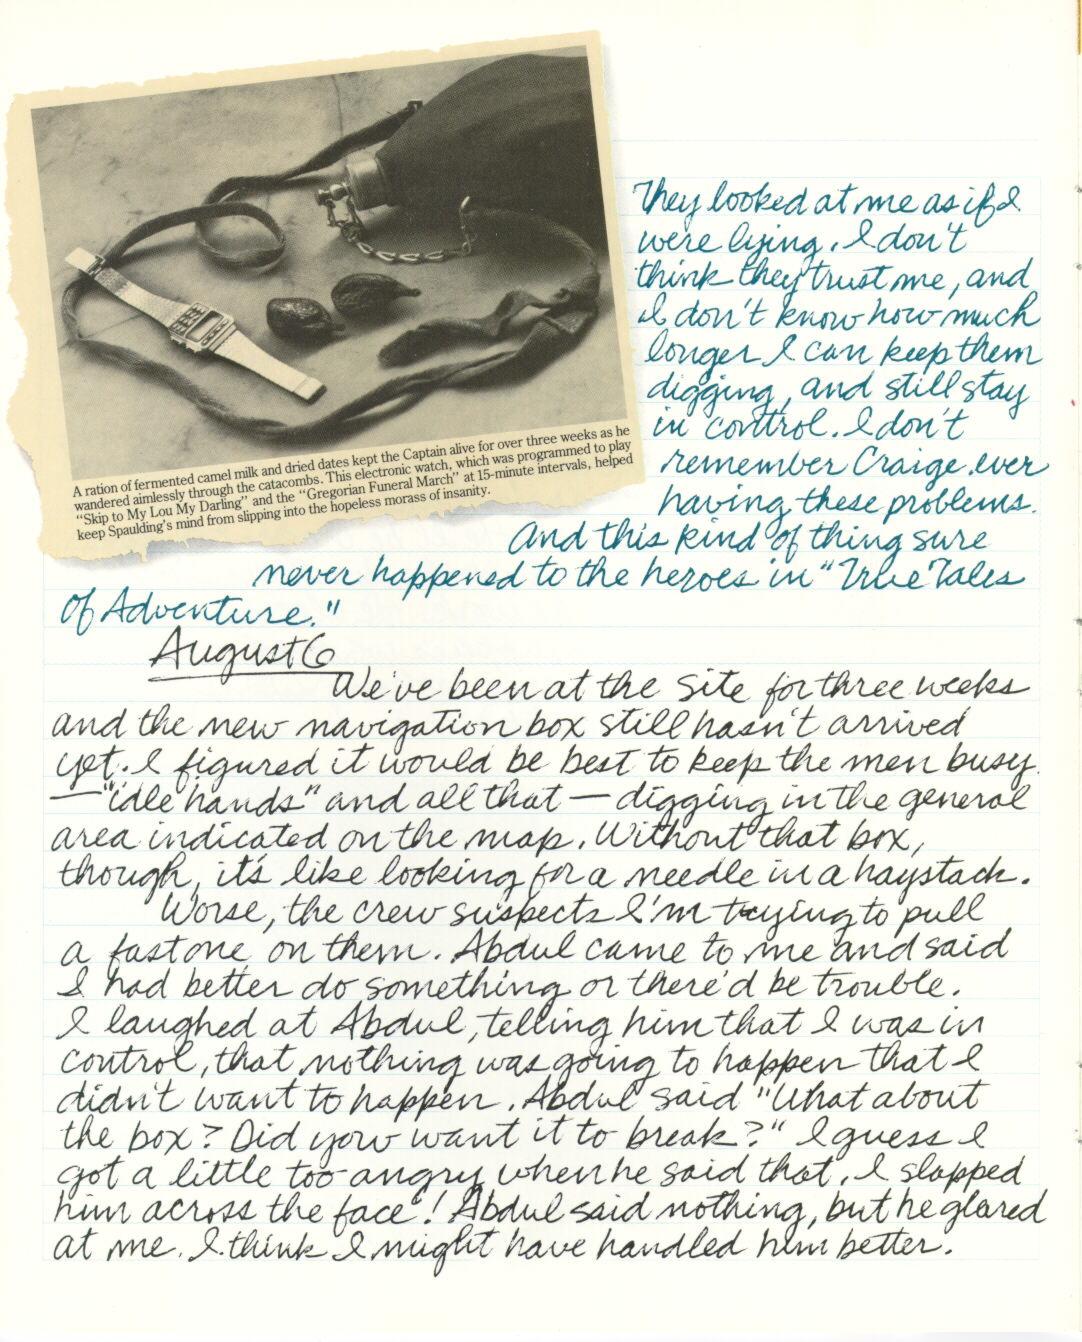 A ration of fermented camel milk and dried dates kept the Captain alive for over three weeks as he
wandered aimlessly through the catacombs. This electronic watch, which was programmed to play
“Skip to My Lou My Darling” and the “Gregorian Funeral March” at 15-minute intervals, helped
keep Spaulding's mind from slipping into the hopeless morass of insanity.
They looked at me as if I
were lying. I don't
think they trust me, and
I don't know how much
longer I can keep them
digging, and still stay
in control. I don't
remember Craige ever
having these problems.
And this kind of thing sure
never happened to the heroes in “True Tales
Of Adventure.”
August 6
We've been at the site for three weeks
and the new navigation box still hasn't arrived
yet. I figured it would be best to keep the men busy
—“idle hands” and all that — digging in the general
area indicated on the map. Without that box,
though, it's like looking for a needle in a haystack.
Worse, the crew suspects I'm trying to pull
a fast one on them. Abdul came to me and said
I had better do something or there'd be trouble.
I laughed at Abdul, telling him that I was in
control, that nothing was going to happen that I
didn't want to happen. Abdul said “What about
the box? Did you want it to break?” I guess I
got a little too angry when he said that. I slapped
him across the face! Abdul said nothing, but he glared
at me. I think I might have handled him better.